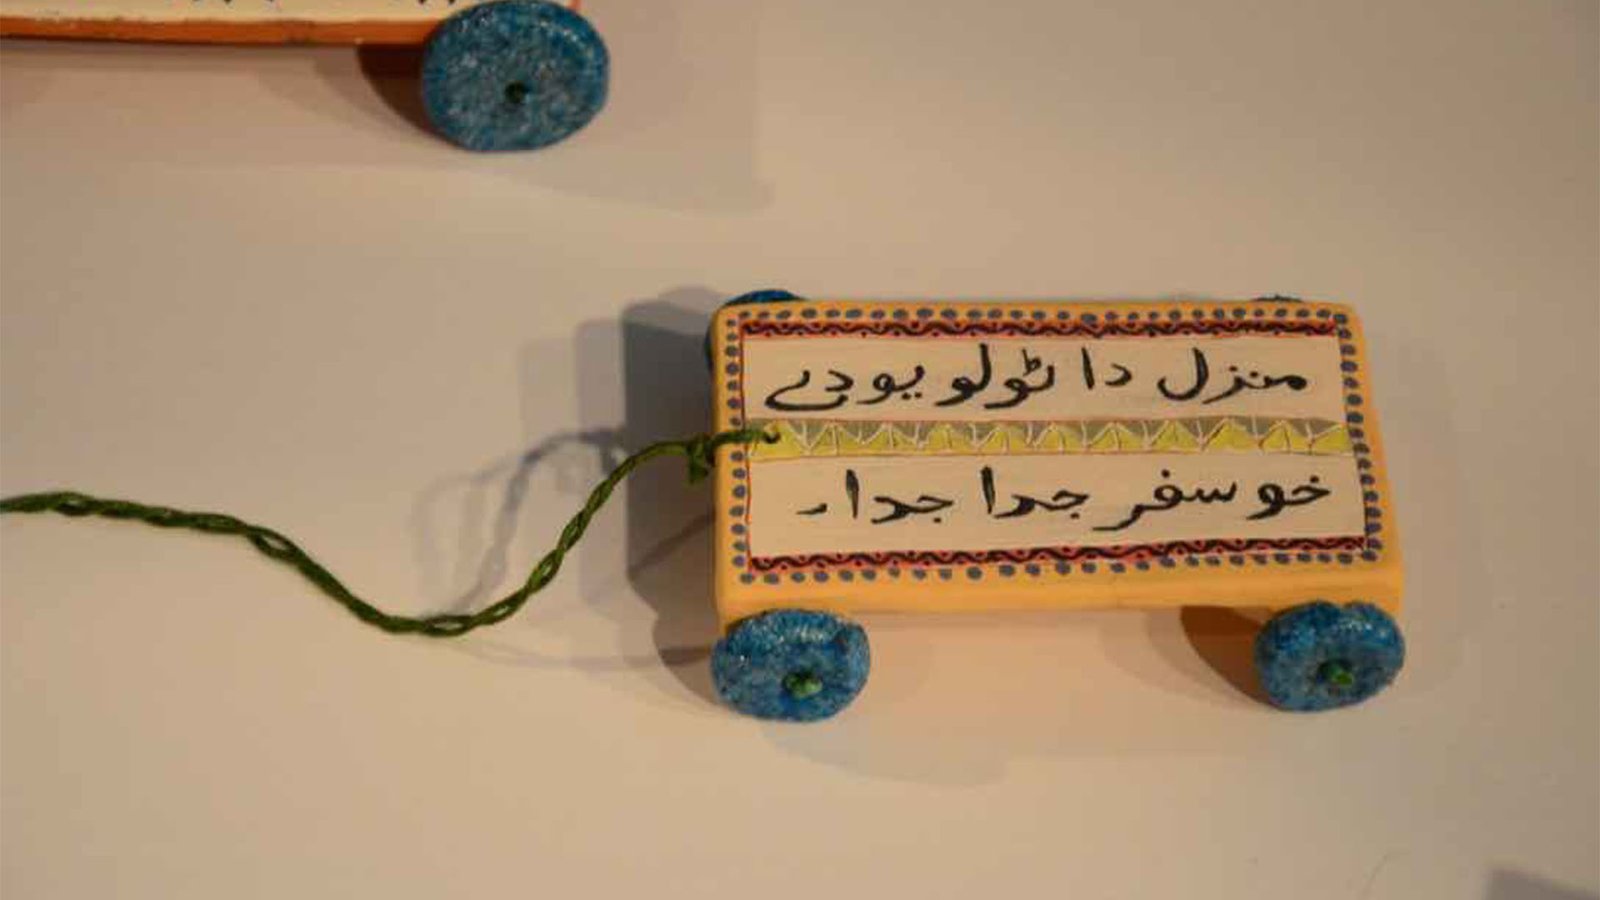 منزل دا ټولو یو دے
خو سفر جدا جدا۔